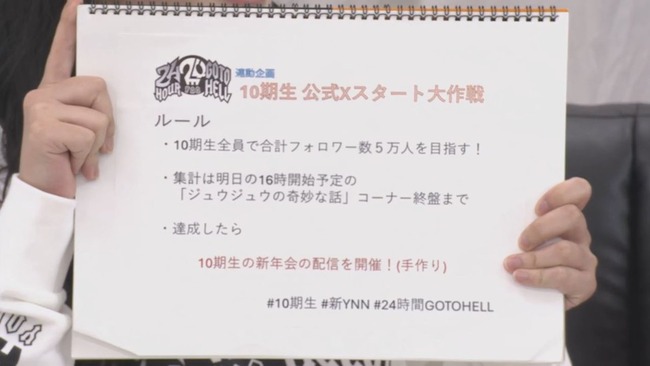 24 HOUR
GOTO HELL
連動企画
10期生 公式Xスタート大作戦
ルール
・10期生全員で合計フォロワー数５万人を目指す！
・集計は明日の16時開始予定の
「ジュウジュウの奇妙な話」コーナー終盤まで
・達成したら
10期生の新年会の配信を開催！(手作り)
#10期生 #新YNN #24時間GOTOHELL